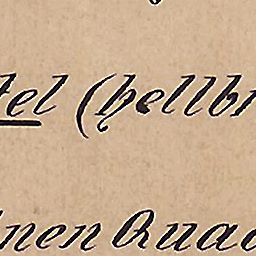 tel (hellbr
inen Quad